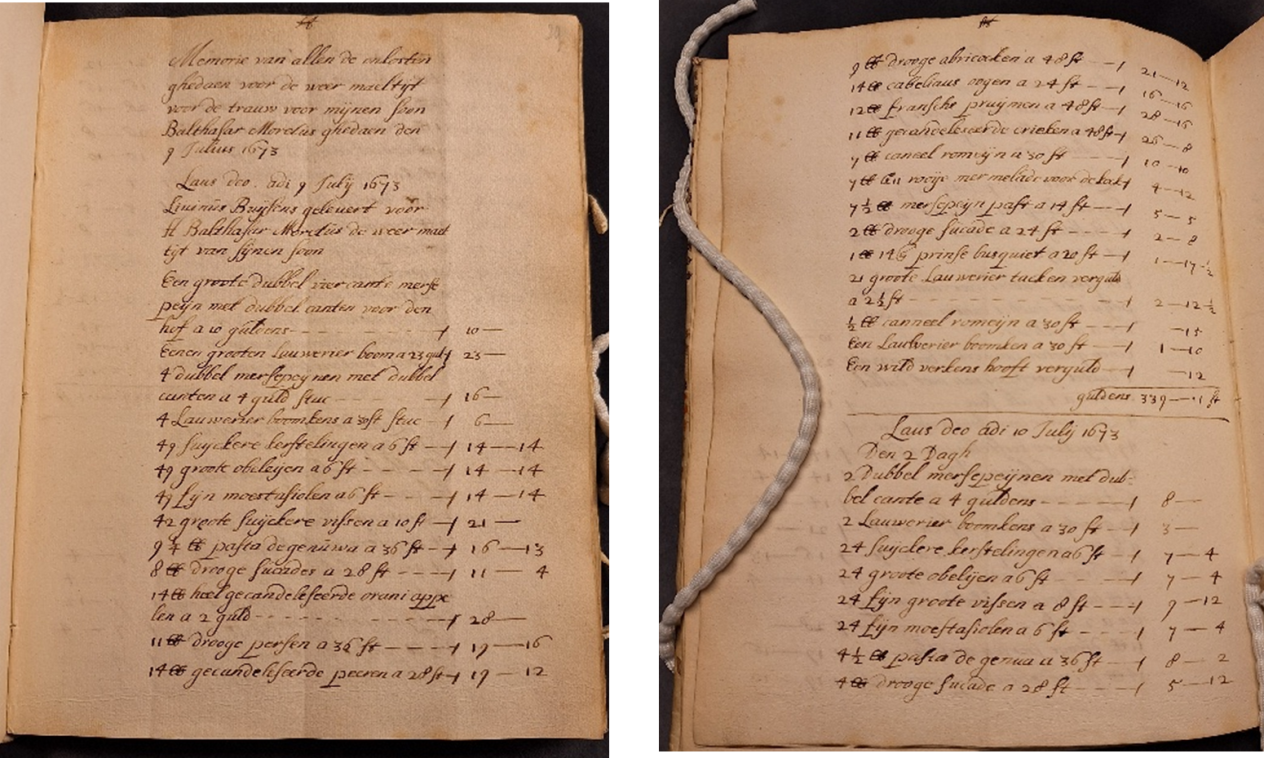 Memorie van allen de onkosten
ghedaen voor de weer maeltijt
voor de trauw voor mijnen soon
Balthasar Moretus ghedaen den
9 Julius 1673
Laus deo adi 9 Julij 1673
Livinus Buijsens gelevert voor
Balthasar Moretus de weer mael
tijt van sijnen soon
Een groote dubbel viercante merse
peijn met dubbel canten voor den
hof a 10 guldens 10 —
Eenen grooten Lauwerier boom a 23 gul 23 —
4 dubbel mersepeijnen met dubbel
canten a 4 guld stuc 16 —
4 Lauwerier boomkens a 30 st stuc 6 —
49 suijckere kerstelingen a 6 st 14 — 14
49 groote obeleijen a 6 st 14 — 14
49 fijn moestasiolen a 6 st 14 — 14
42 groote suijckere vissen a 10 st 21 —
9 ¼ lb pasta de genuwa a 36 st 16 — 13
8 lb drooge sucades a 28 st 11 — 4
14 lb heel gecandeliseerde orani appe
len a 2 guld 28 —
11 lb drooge persen a 36 st 19 — 16
14 lb gecandeliseerde peeren a 28 st 19 — 12
9 lb drooge abricocken a 48 st 21 — 12
14 lb cabeliaus oogen a 24 st 16 — 16
12 lb fransche pruijmen a 48 st 28 — 16
11 lb gecandeleseerde crieken a 48 st 26 — 8
7 lb caneel romeijn a 30 st 10 — 10
rooije mermelade voor de 4 — 12
7 ½ lb mersepeijn past a 14 st 5 — 5
2 lb drooge sucade a 24 st 2 — 8
1 lb 14 prinse busquiet a 20 st 1 — 17 ½
21 groote Lauwerier tacken verguld
a 2 ½ st 2 — 12 ½
½ lb canneel romeijn a 30 st — 15
Een Lauwerier boomken a 30 st 1 — 10
Een wild verkens hooft verguld — 12
guldens 339 — 11 st
Laus deo adi 10 Julij 1673
Den 2 Dagh
2 Dubbel mersepeijnen met dub-
bel cante a 4 guldens 8 —
2 Lauwerier boomkens a 30 st 3 —
24 suijckere kerstelingen a 6 st 7 — 4
24 groote obelijen a 6 st 7 — 4
24 fijn groote vissen a 8 st 9 — 12
24 fijn moestasiolen a 6 st 7 — 4
4 ½ lb pasta de genua a 36 st 8 — 2
4 lb drooge sucade a 28 st 5 — 12